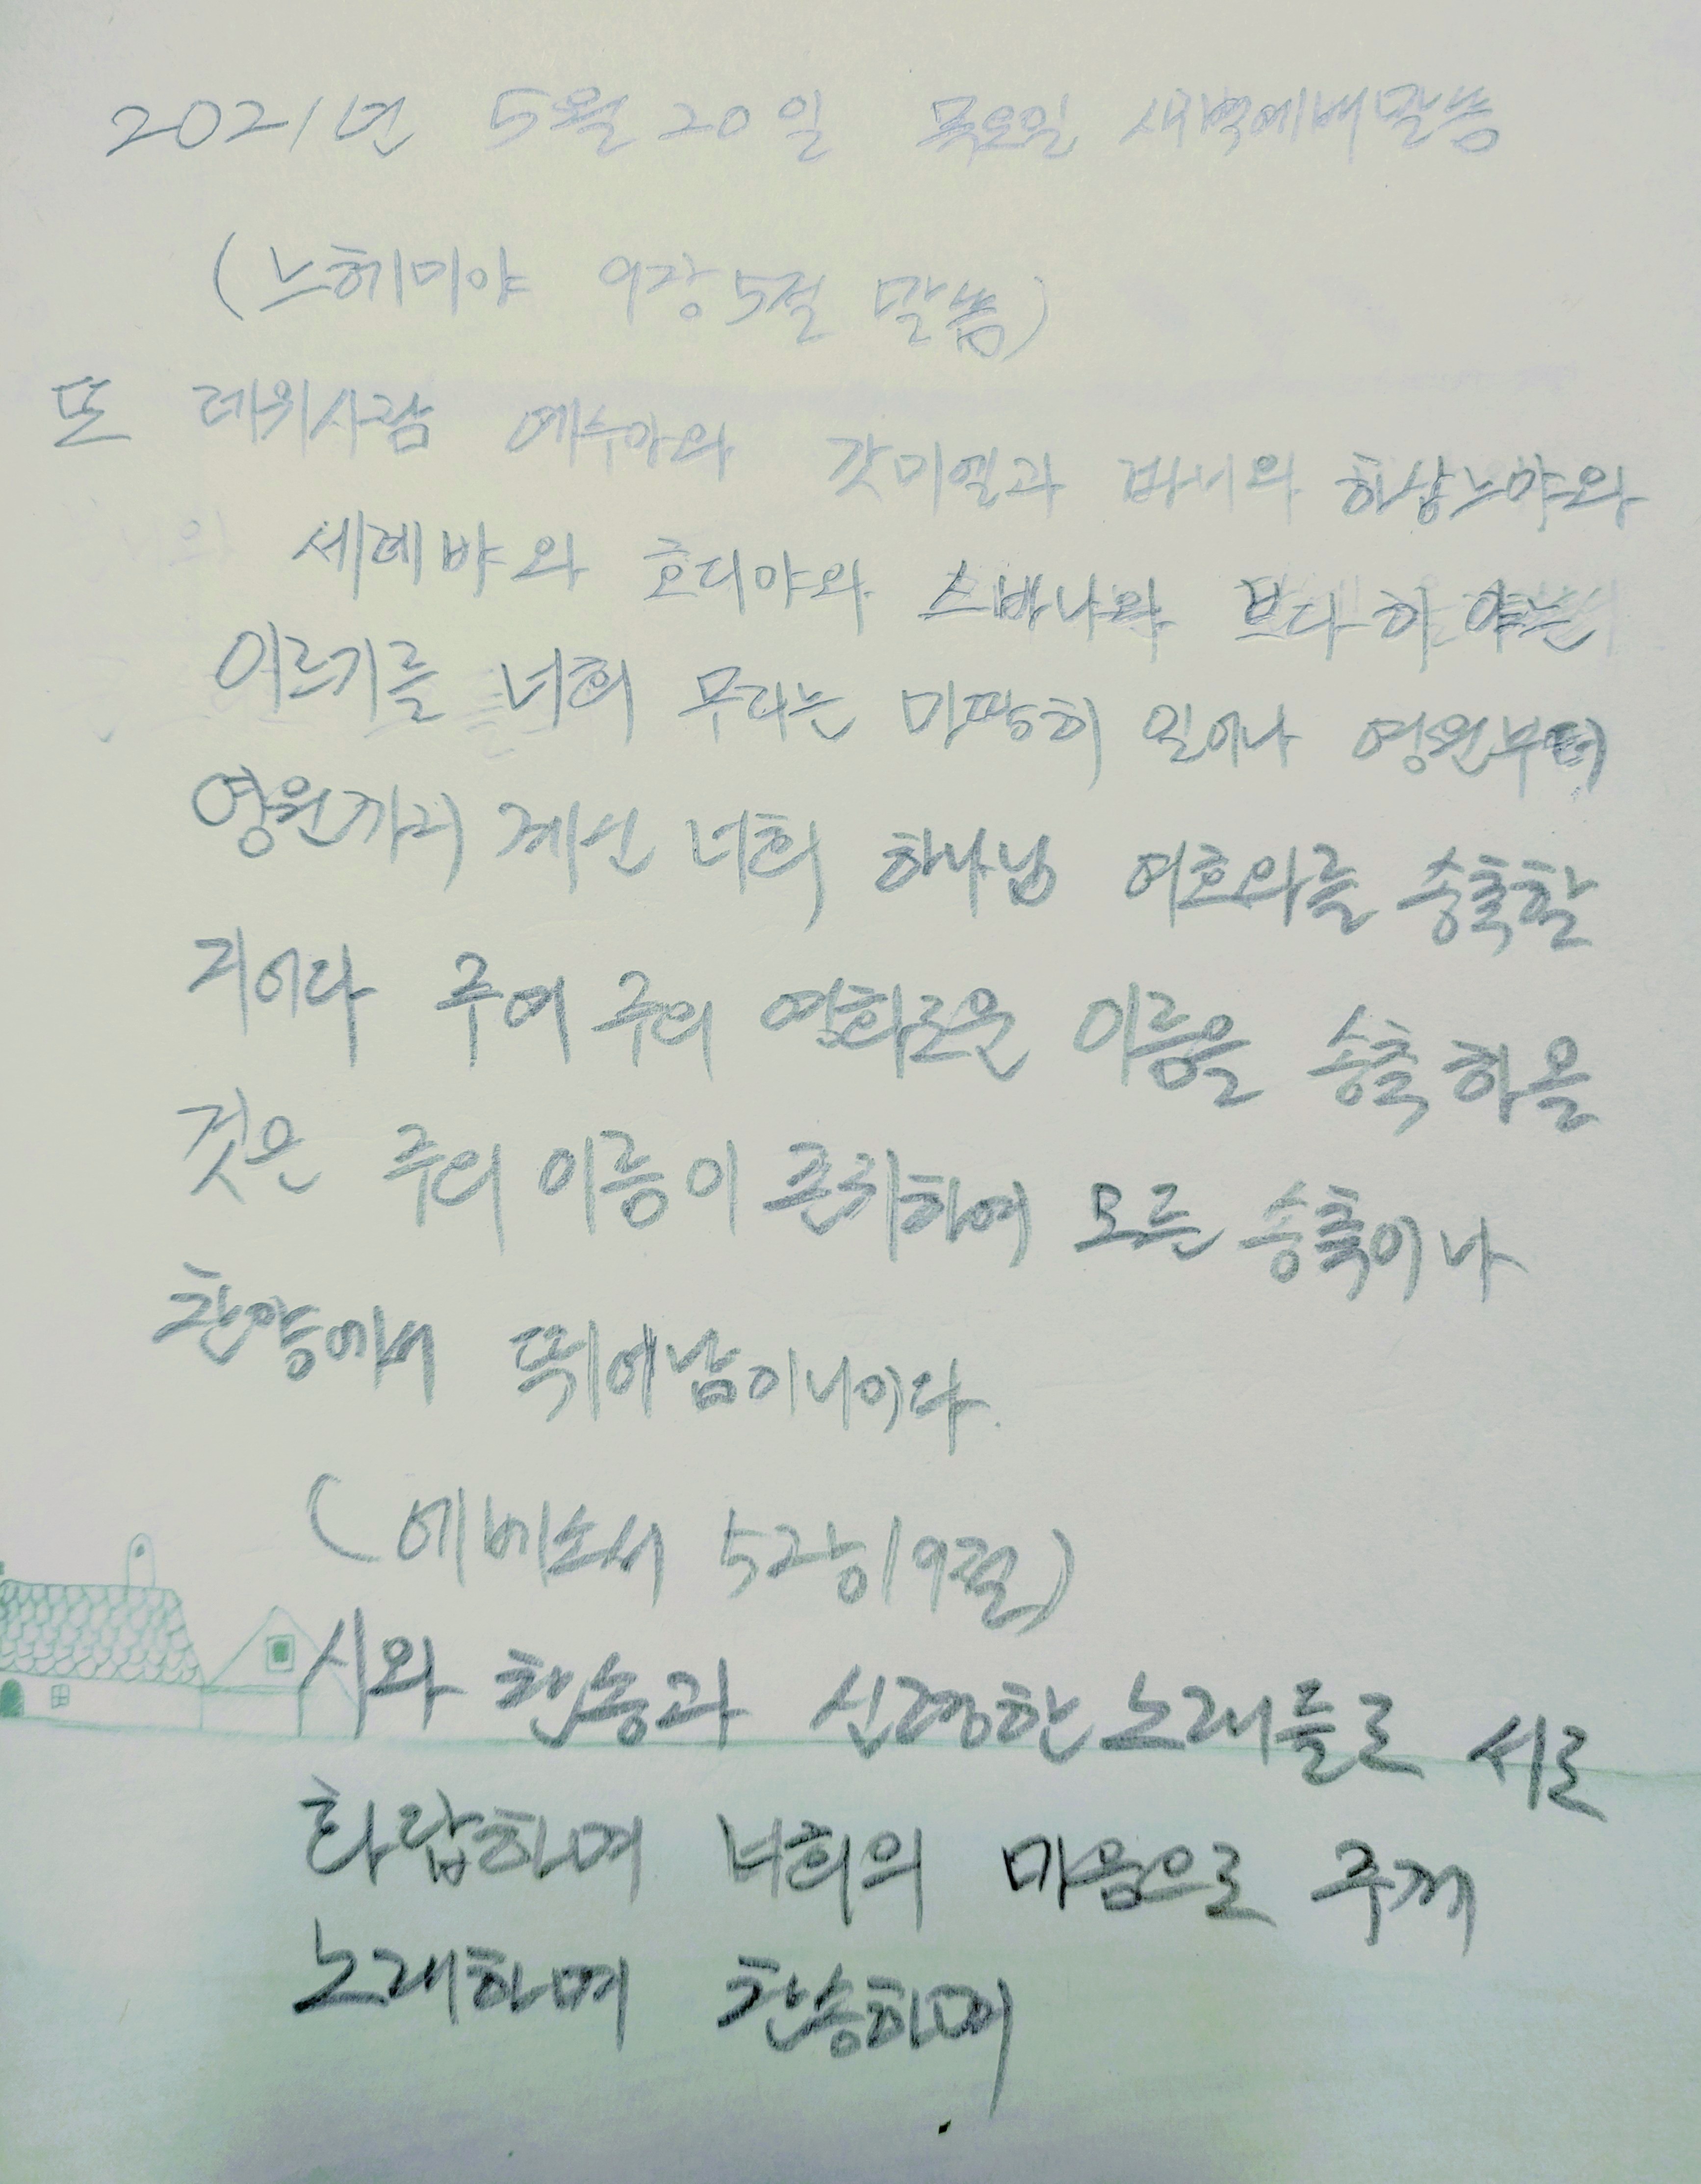 2021년 5월 20일 목요일 새벽예배말씀
(느헤미야 9장 5절 말씀)
또 레위사람 예수아와 갓미엘과 바니와 하삽느야와
세레뱌와 호디야와 스바냐와 브다히야는
이르기를 너희 무리는 마땅히 일어나 영원부터
영원까지 계신 너희 하나님 여호와를 송축할
지어다 주여 주의 영화로운 이름을 송축하올
것은 주의 이름이 존귀하여 모든 송축이나
찬양에서 뛰어남이니이다.
(에베소서 5장 19절)
시와 찬송과 신령한 노래들로 서로
화답하며 너희의 마음으로 주께
노래하며 찬송하며